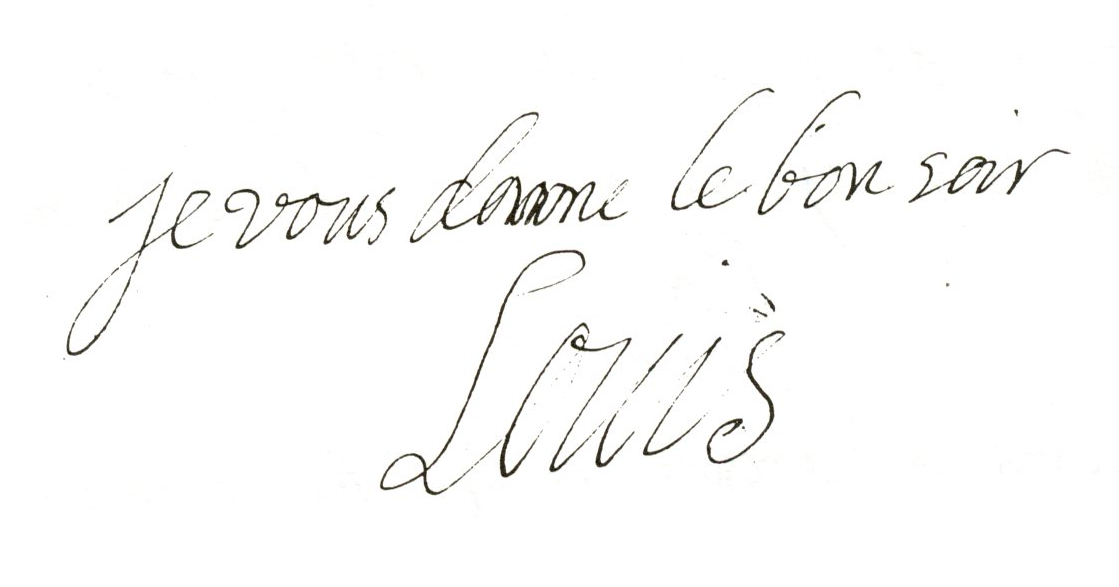 je vous donne le bon soir
Louis